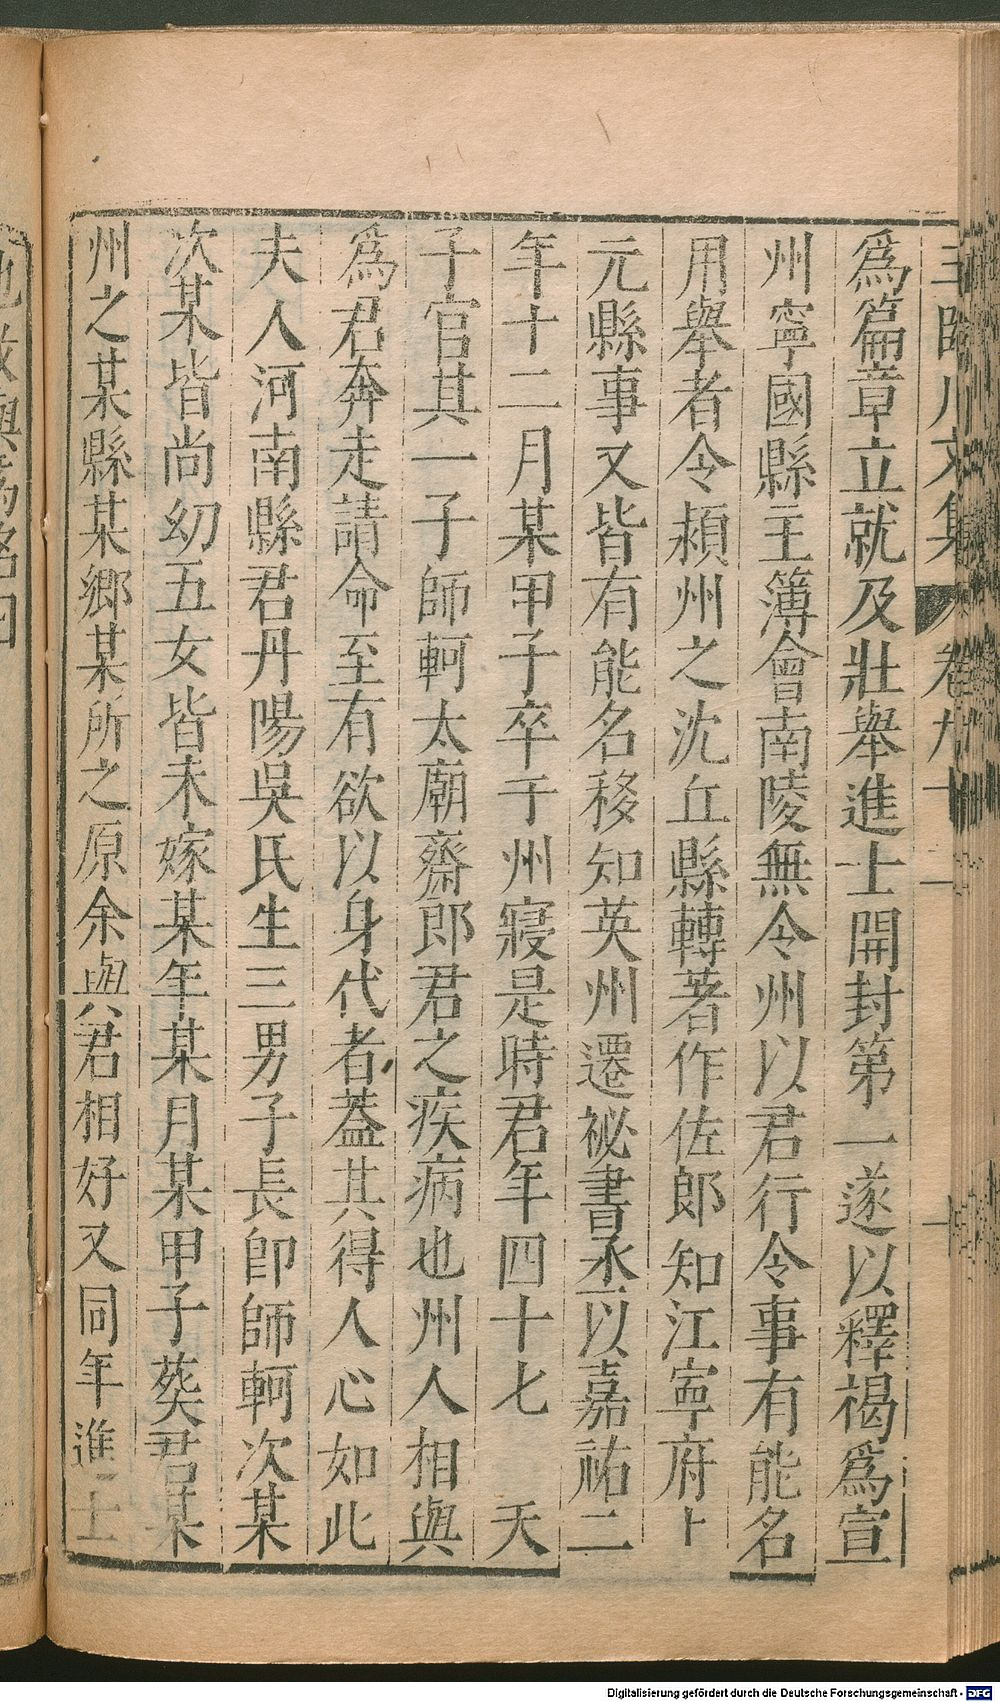 王臨川文集 卷九十一
爲篇章立就及壯舉進士開封第一遂以釋褐爲宣
州寧國縣主簿會南陵無令州以君行令事有能名
用舉者令潁州之沈丘縣轉著作佐郎知江寧府上
元縣事又皆有能名移知英州遷祕書丞以嘉祐二
年十二月某甲子卒于州寢是時君年四十七 天
子官其一子師軻太廟齋郎君之疾病也州人相與
爲君奔走請命至有欲以身代者蓋其得人心如此
夫人河南縣君丹陽吳氏生三男子長卽師軻次某
次某皆尚幼五女皆未嫁某年某月某甲子葬君某
州之某縣某鄉某所之原余與君相好又同年進士
也故與爲銘曰
Digitalisierung gefördert durch die Deutsche Forschungsgemeinschaft - DFG